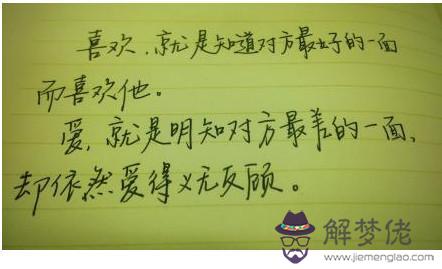 喜欢,就是知道对方最好的一面
而喜欢他。
爱,就是明知对方最差的一面,
却依然爱得义无反顾。
解梦佬
www.jiemenglao.com